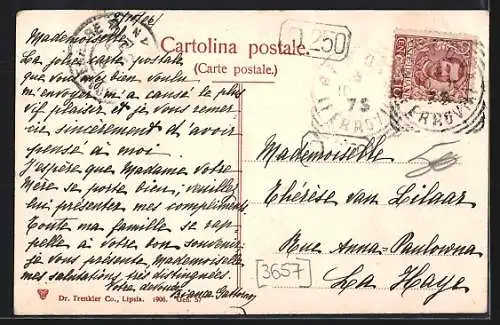 Cartolina postale.
(Carte postale.)
250
75
Mademoiselle
La jolie carte postale
que vous avez bien voulu
m'envoyer m'a causé le plus
vif plaisir et je vous remer-
cie sincèrement d'avoir
pensé à moi.
J'espère que Madame votre
Mère se porte bien, veuillez
lui présenter mes compliments.
Toute ma famille se rap-
pelle à votre bon souvenir,
je vous présente Mademoiselle
mes salutations très distinguées.
Votre dévouée Bianca
Dr. Trenkler Co., Lipsia. 1906.
Mademoiselle
Thérèse van
Rue Anna-Paulowna
La Haye
[3657]